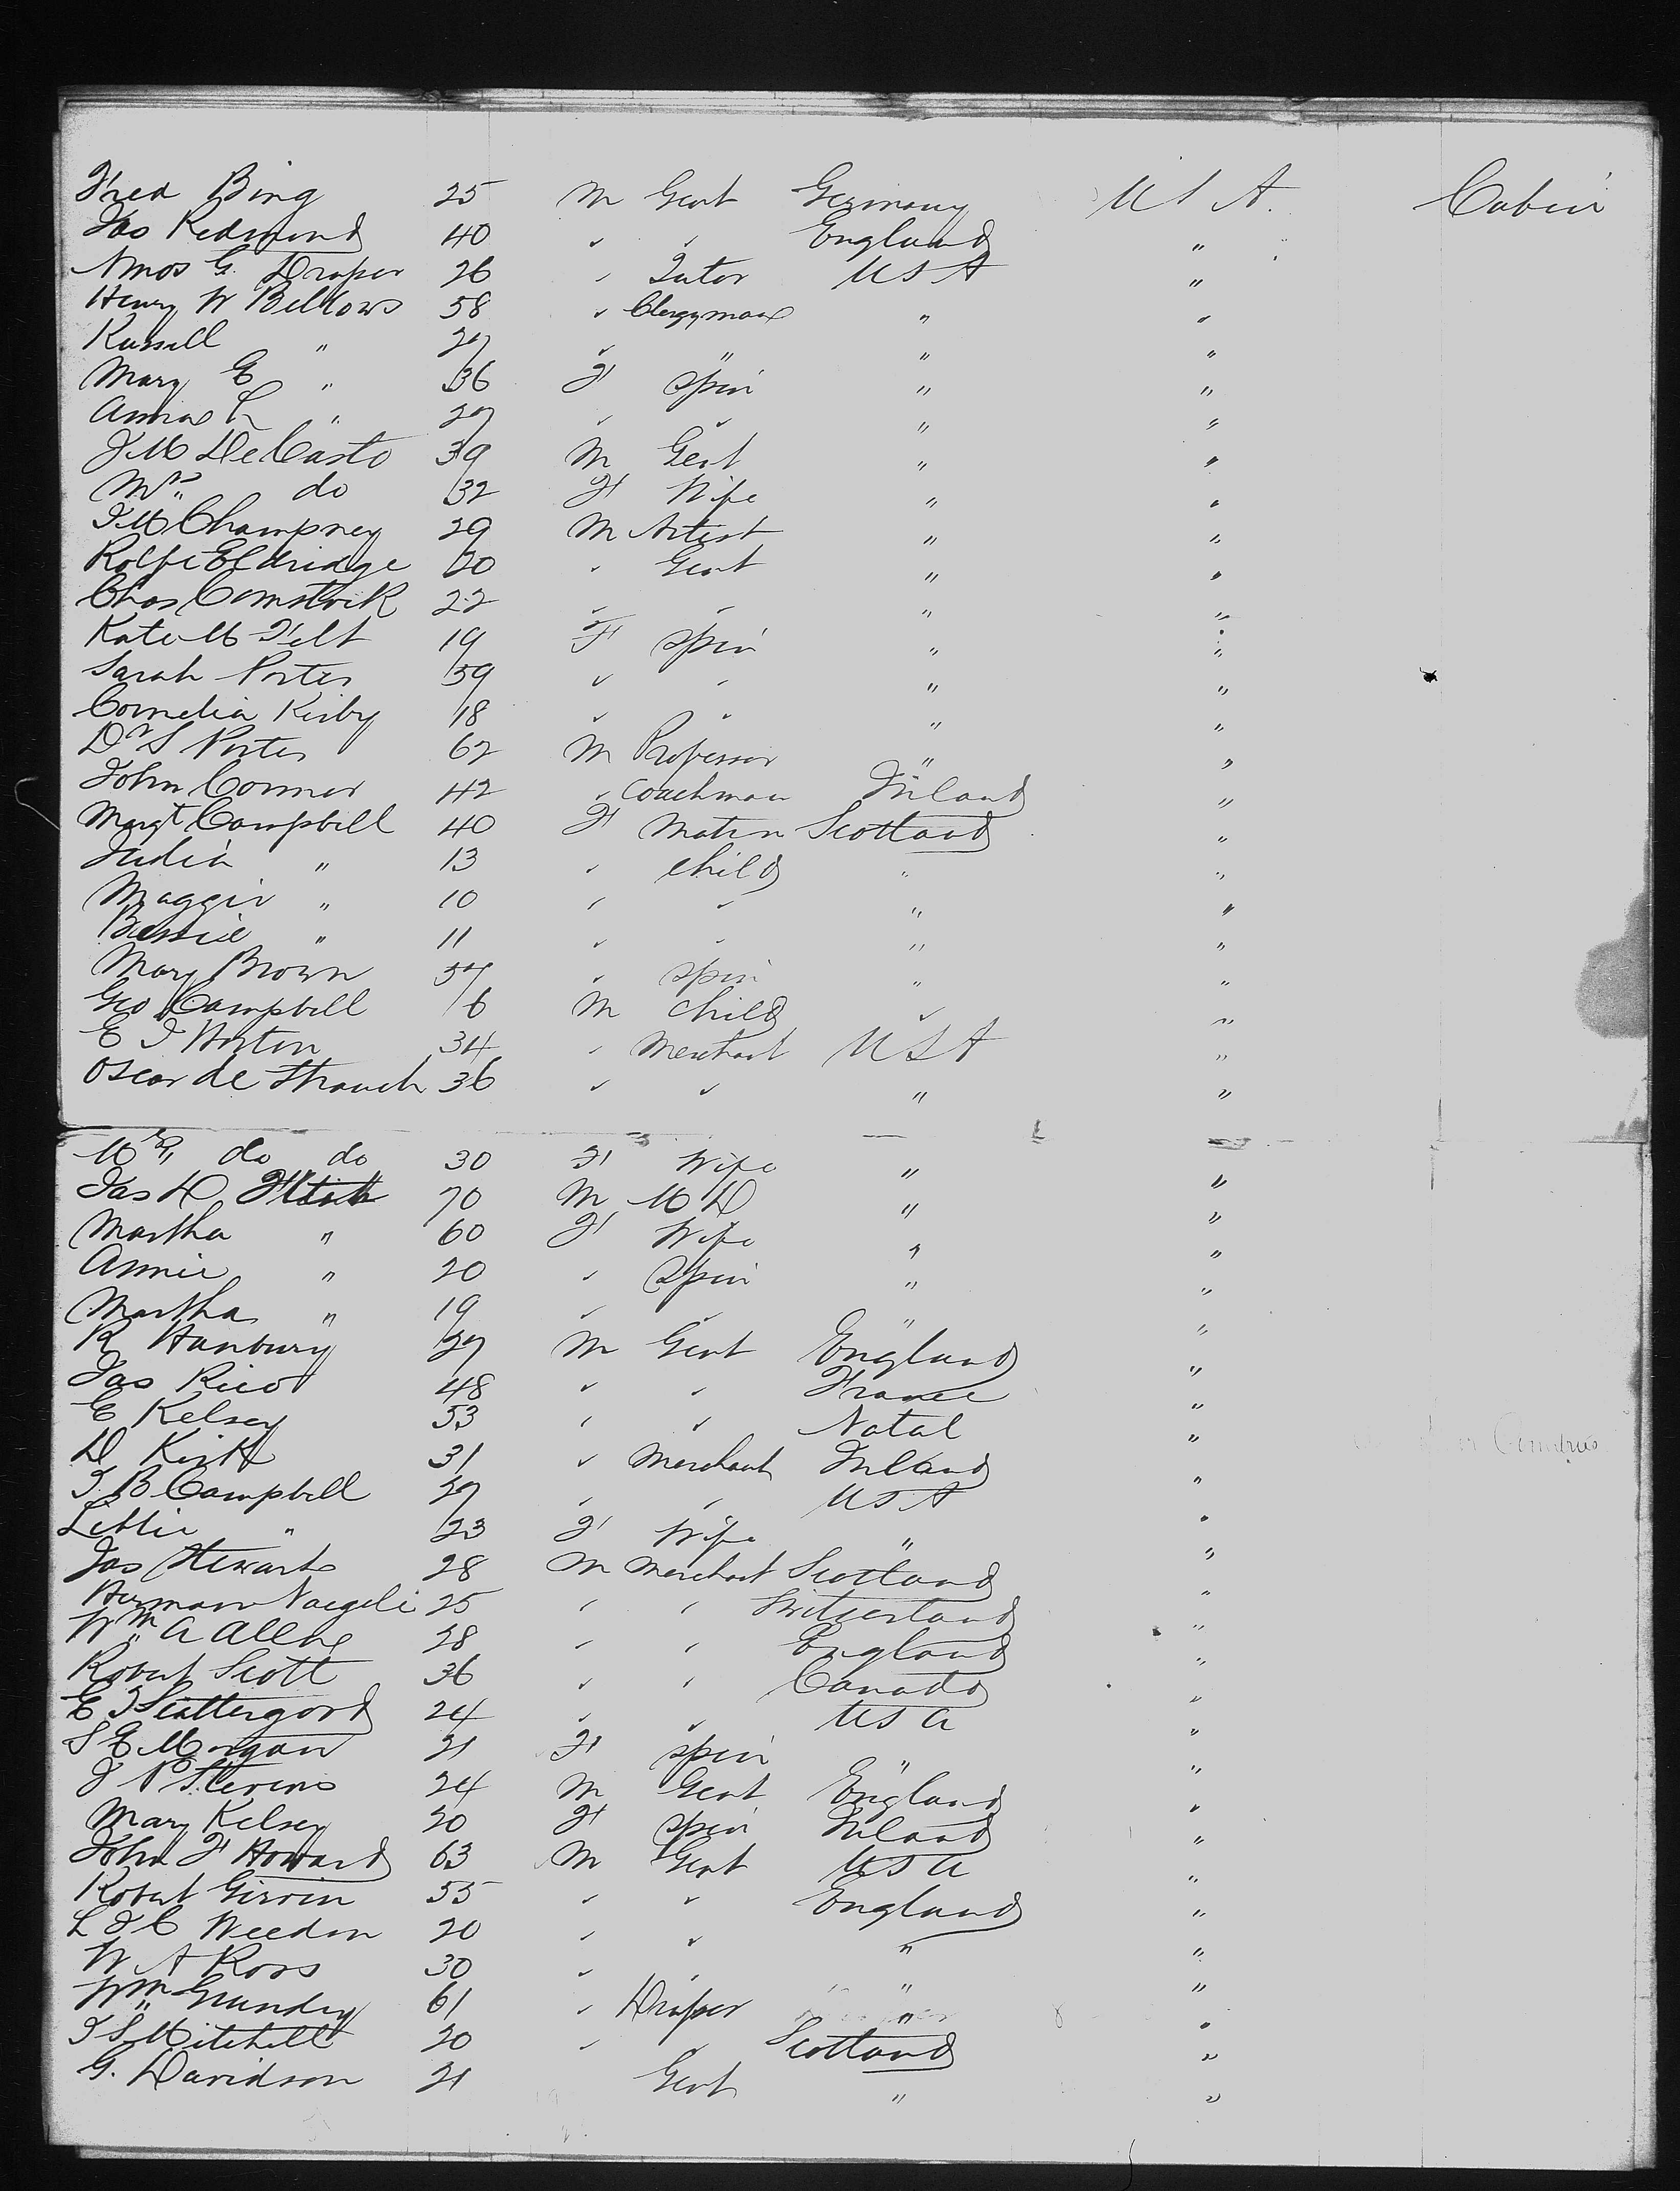 Fred Bing 25 M Gent Germany U S A. Cabin
Jas Redmond 40 " " England "
Amos G. Draper 26 " Tutor U S A "
Henry W Bellows 58 " Clergyman " "
Russell " 27 " " " "
Mary E " 36 F Spin " "
Anna L " 27 " " " "
J M De Casto 39 M Gent " "
Mrs do 32 F Wife " "
J M Champney 29 M Artist " "
Rolfe Eldridge 20 " Gent " "
Chas Comstock 22 " " " "
Kate M Felt 19 F Spin " "
Sarah Porter 59 " " " "
Cornelia Kirby 18 " " " "
Dr S Porter 62 M Professor " "
John Connor 42 " Coachman Ireland "
Margt Campbell 40 F Matrn Scotland "
Julia " 13 " Child " "
Maggie " 10 " " " "
Bessie " 11 " " " "
Mary Brown 54 " Spin " "
Geo Campbell 6 M Child " "
E J Horton 34 " Merchant U S A "
Oscar de Strauch 36 " " " "
Mrs do do 30 F Wife " "
Jas D. 70 M M D " "
Martha " 60 F Wife " "
Annie " 20 " Spin " "
Martha " 19 " " " "
R Hanbury 27 M Gent England "
Jas Rico 48 " " France "
E Kelsey 53 " " Natal "
D Kirk 31 " Merchant Ireland "
J. B Campbell 27 " " U S A "
Lettie " 23 F Wife " "
Jas Stewart 28 M Merchant Scotland "
Herman Naegeli 25 " " Switzerland "
Wm A Allen 28 " " England "
Robert Scott 36 " " Canada "
E J Scattergood 24 " " U S A "
S E Morgan 21 F Spin " "
J N Stevens 24 M Gent England "
Mary Kelsey 20 F Spin Ireland "
John F Howard 63 M Gent U S A "
Robert Girvin 55 " " England "
L J C Weedon 20 " " " "
W A Ross 30 " " " "
Wm Grundy 61 " Draper " "
J S Mitchell 20 " " Scotland "
G. Davidson 21 Gent " "